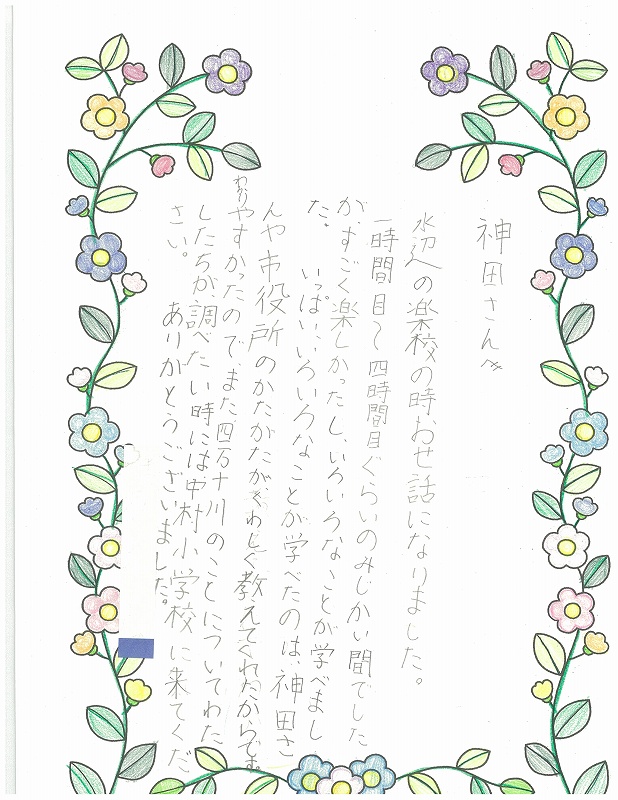 神田さんへ
水辺の楽校の時、おせ話になりました。
一時間目〜四時間目ぐらいのみじかい間でした
がすごく楽しかったし、いろいろなことが学べまし
た。いっぱい、いろいろなことが学べたのは、神田さ
んや市役所のかたがたがくわしく教えてくれたからです。
わかりやすかったので、また四万十川のことについてわた
したちが、調べたい時には中村小学校に来てくだ
さい。ありがとうございました。